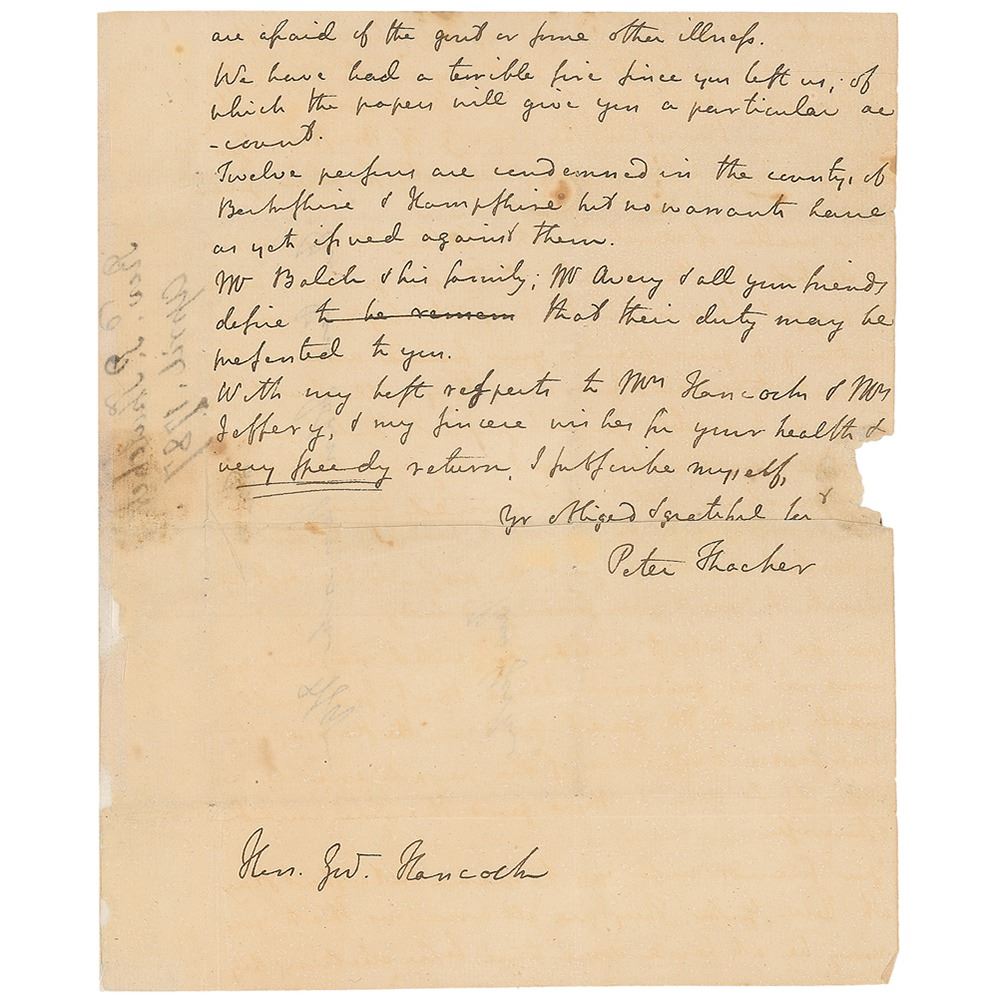 are afraid of the gout or some other illness.
We have had a terrible fire since you left us, of
which the papers will give you a particular ac
-count.
Twelve persons are condemned in the county, of
Berkshire & Hampshire but no warrants have
as yet issued against them.
Mr Balch & his family, Mr Avery & all your friends
desire to be remem that their duty may be
presented to you.
With my best respects to Mrs Hancock & Mrs
Jeffery, & my sincere wishes for your health &
very speedy return, I subscribe myself,
Yr obliged & grateful Servt
Peter Thacher
Hon. Gov. Hancock
April. 1787